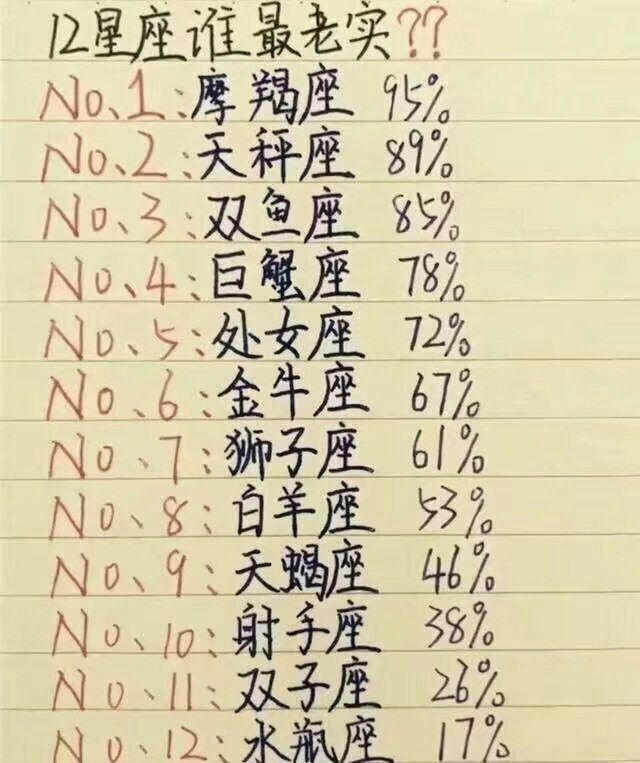 12星座谁最老实??
No、1:摩羯座 95%
No、2:天秤座 89%
No、3:双鱼座 85%
No、4:巨蟹座 78%
No、5:处女座 72%
No、6:金牛座 67%
No、7:狮子座 61%
No、8:白羊座 53%
No、9:天蝎座 46%
No、10:射手座 38%
No、11:双子座 26%
No、12:水瓶座 17%